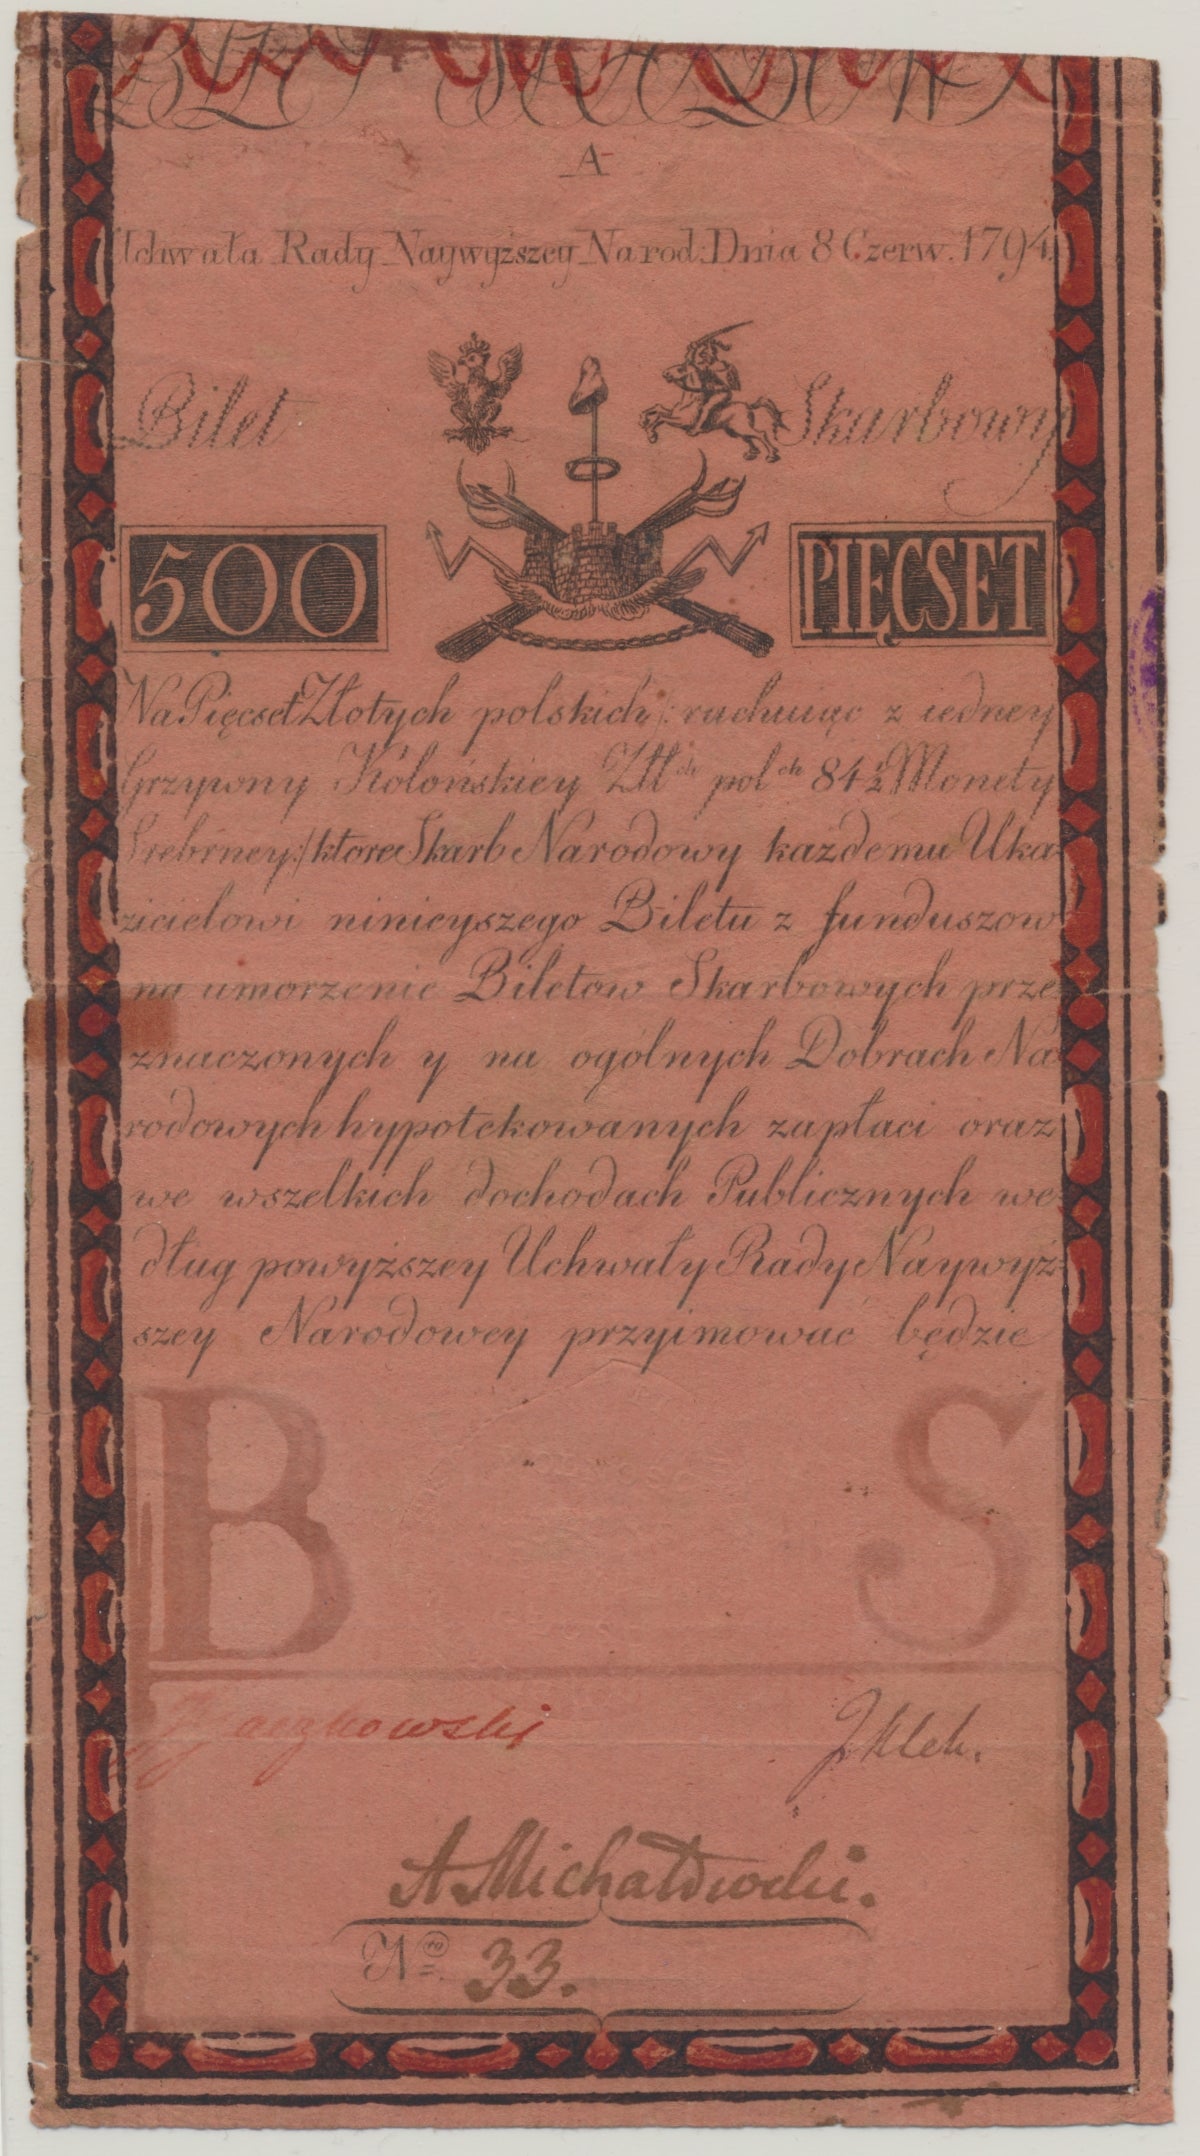 A
Uchwała Rady Naywyższey Narod: Dnia 8 Czerw. 1794.
Bilet Skarbowy
500 PIĘCSET
Na Pięcset Złotych polskich /: rachuiąc z iedney
Grzywny Kolońskiey Złł ch pol ch 84 1/2 Monety
Srebrney :/ ktore Skarb Narodowy każdemu Uka-
zicielowi ninieyszego Biletu z funduszow
na umorzenie Biletow Skarbowych prze-
znaczonych y na ogólnych Dobrach Na-
rodowych hypotekowanych zapłaci oraz
we wszelkich dochodach Publicznych we-
dług powyższey Uchwały Rady Naywyż-
szey Narodowey przyimować będzie
B S
A Michałowski.
No 33.